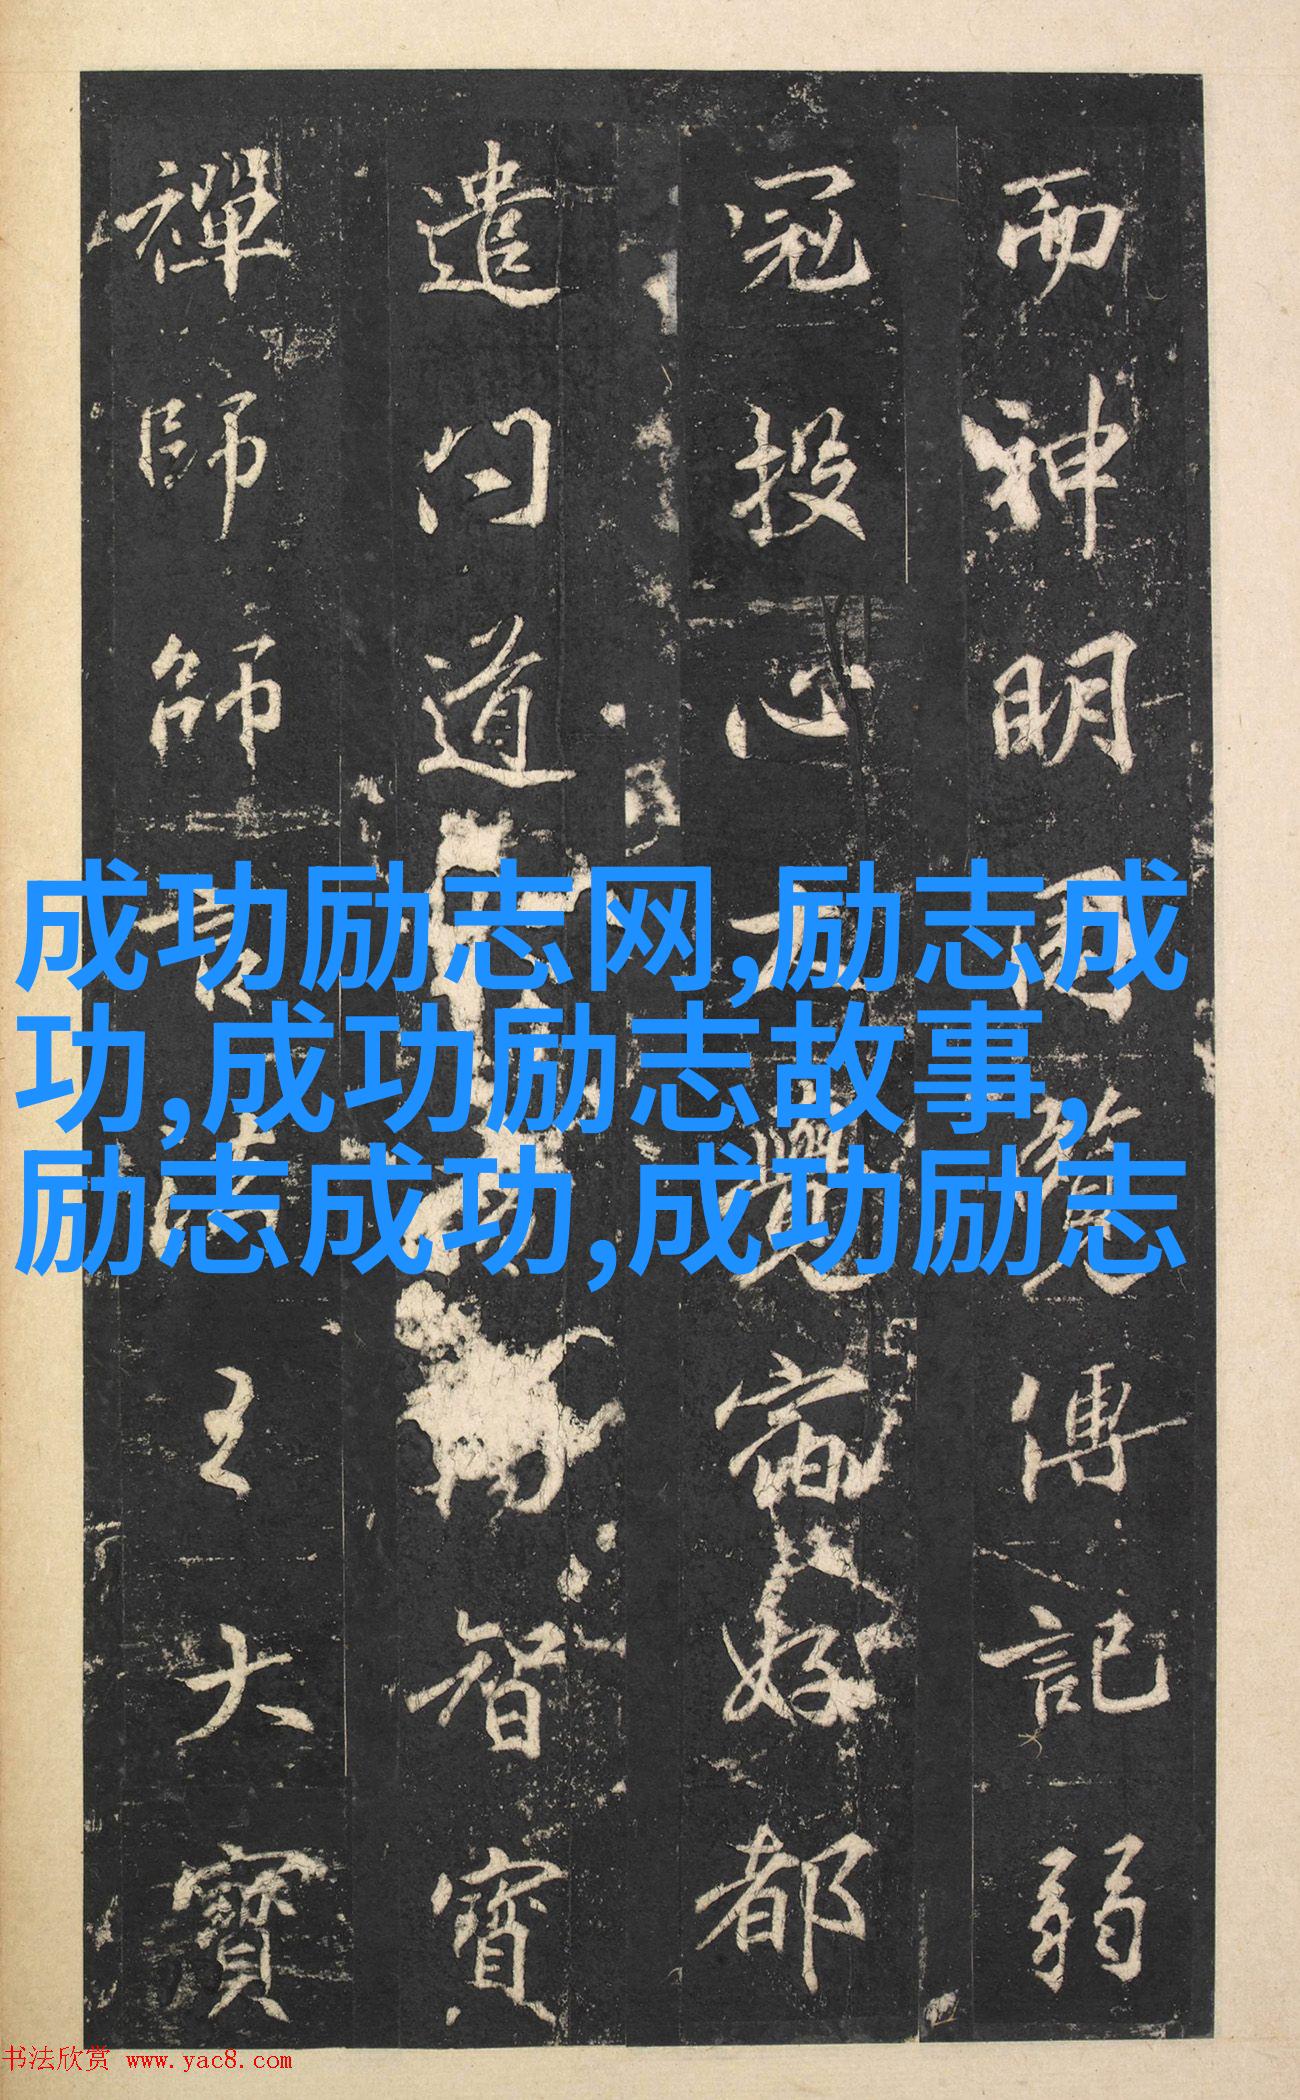 而神明周覽傳記弱
冠投心大覺宿好都
遣問道智寶
禪師師言法王大寶
成功励志网,励志成
功,成功励志故事,
励志成功,成功励志
书法欣赏 www.yac8.com